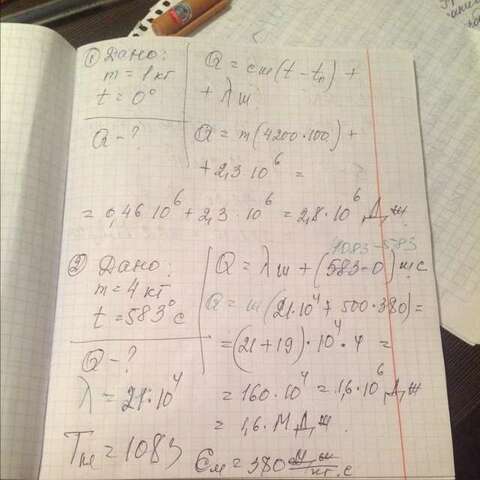 ① Дано:
m = 1 кг
t = 0°
Q - ?
Q = cm(t - t₀) +
+ λm
Q = m(4200·100) +
+ 2,3 10⁶ =
= 0,46 10⁶ + 2,3 · 10⁶ = 2,8·10⁶ Дж.
② Дано:
m = 4 кг
t = 583° c
Q - ?
λ = 21·10⁴
Tпл = 1083
1083-583
Q = λm + (583-0) mc
Q = m(21·10⁴ + 500·380) =
= (21 + 19) · 10⁴ · 4 =
= 160·10⁴ = 1,6·10⁶ Дж
= 1,6. МДж.
Cм = 380 Дж/кг.c